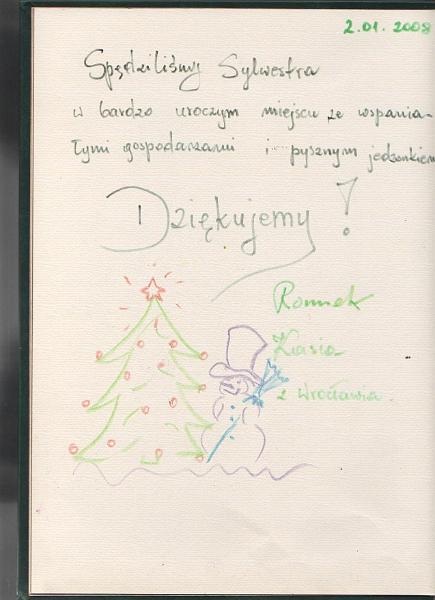 2.01.2008
Spędziliśmy Sylwestra
w bardzo uroczym miejscu ze wspania-
łymi gospodarzami i pysznym jedzonkiem
Dziękujemy!
Romek
Kasia
z Wrocławia